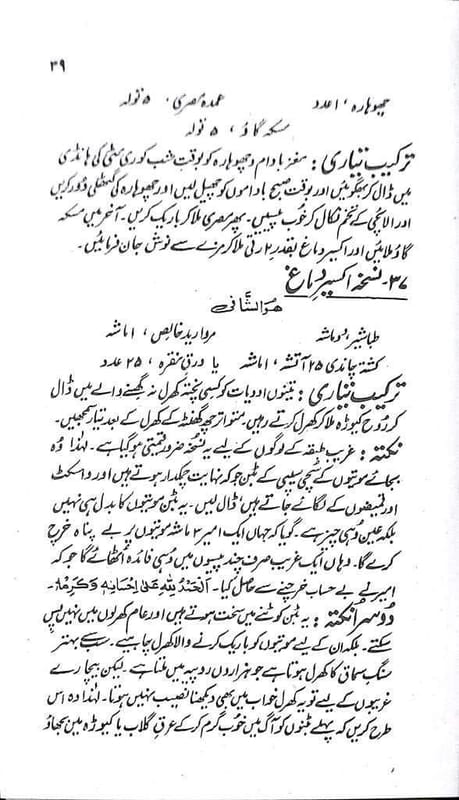 ۳۹
چھوہارہ، ۱ عدد عمدہ مصری، ۵ تولہ
مسکہ گاؤ، ۵ تولہ
ترکیب تیاری: مغز بادام و چھوہارہ کو بوقتِ شب کوری مٹی کی ہانڈی
میں ڈال کر بھگوئیں اور بوقت صبح باداموں کو چھیل لیں اور چھوہارہ کی گٹھلی دُور کریں
اور الائچی کے تخم نکال کر خوب پیسیں۔ پھر مصری ملا کر باریک کریں۔ آخر میں مسکہ
گاؤ ملائیں اور اکسیر دماغ بقدر ۲ رتی ملا کر مزے سے نوش جان فرمائیں۔
۳۷۔ نسخہ اکسیر دماغ
ھوالشافی
طباشیر، دو ماشہ مروارید خالص، ۱ ماشہ
کشتہ چاندی ۲۵ آتشہ، ۱ ماشہ یا ورق نقرہ، ۲۵ عدد
ترکیب تیاری: تینوں ادویات کو کسی پختہ کھرل نہ گھسنے والے میں ڈال
کر رُوح کیوڑہ ملا کر کھرل کرتے رہیں۔ متواتر چھ گھنٹہ کے کھرل کے بعد تیار سمجھیں۔
نکتہ: غریب طبقہ کے لوگوں کے لیے یہ نسخہ ضرور قیمتی ہو گیا ہے۔ لہٰذا وُہ
بجائے موتیوں کے سُچی سیپی کے بٹن جو کہ نہایت چمکدار ہوتے ہیں اور واسکٹ
اور قمیضوں کے لگائے جاتے ہیں، ڈال لیں۔ یہ بٹن موتیوں کا بدل ہی نہیں
بلکہ عین وُہی چیز ہے۔ گویا کہ جہاں ایک امیر ۲ ماشہ موتیوں پر بے پناہ خرچ
کرے گا۔ وہاں ایک غریب صرف چند پیسوں میں وُہی فائدہ اُٹھائے گا جو کہ
امیر نے بے حساب خرچنے سے حاصل کیا۔ اَلْحَمْدُ لِلّٰہِ عَلیٰ اِحْسَانِہٖ وَکَرَمِہٖ۔
دُوسرا نکتہ: یہ بٹن کوٹنے میں سخت ہوتے ہیں اور عام کھرلوں میں نہیں پس
سکتے۔ بلکہ ان کے لیے موتیوں کو باریک کرنے والا کھرل چاہیے۔ سب سے بہتر
سنگ سماق کا کھرل ہوتا ہے جو ہزاروں روپیہ میں ملتا ہے۔ لیکن بیچارے
غریبوں کے لیے تو یہ کھرل خواب میں بھی دیکھنا نصیب نہیں ہوتا۔ لہٰذا وہ اس
طرح کریں کہ پہلے بٹنوں کو آگ میں خوب گرم کر کے عرق گلاب یا کیوڑہ میں بجھاؤ